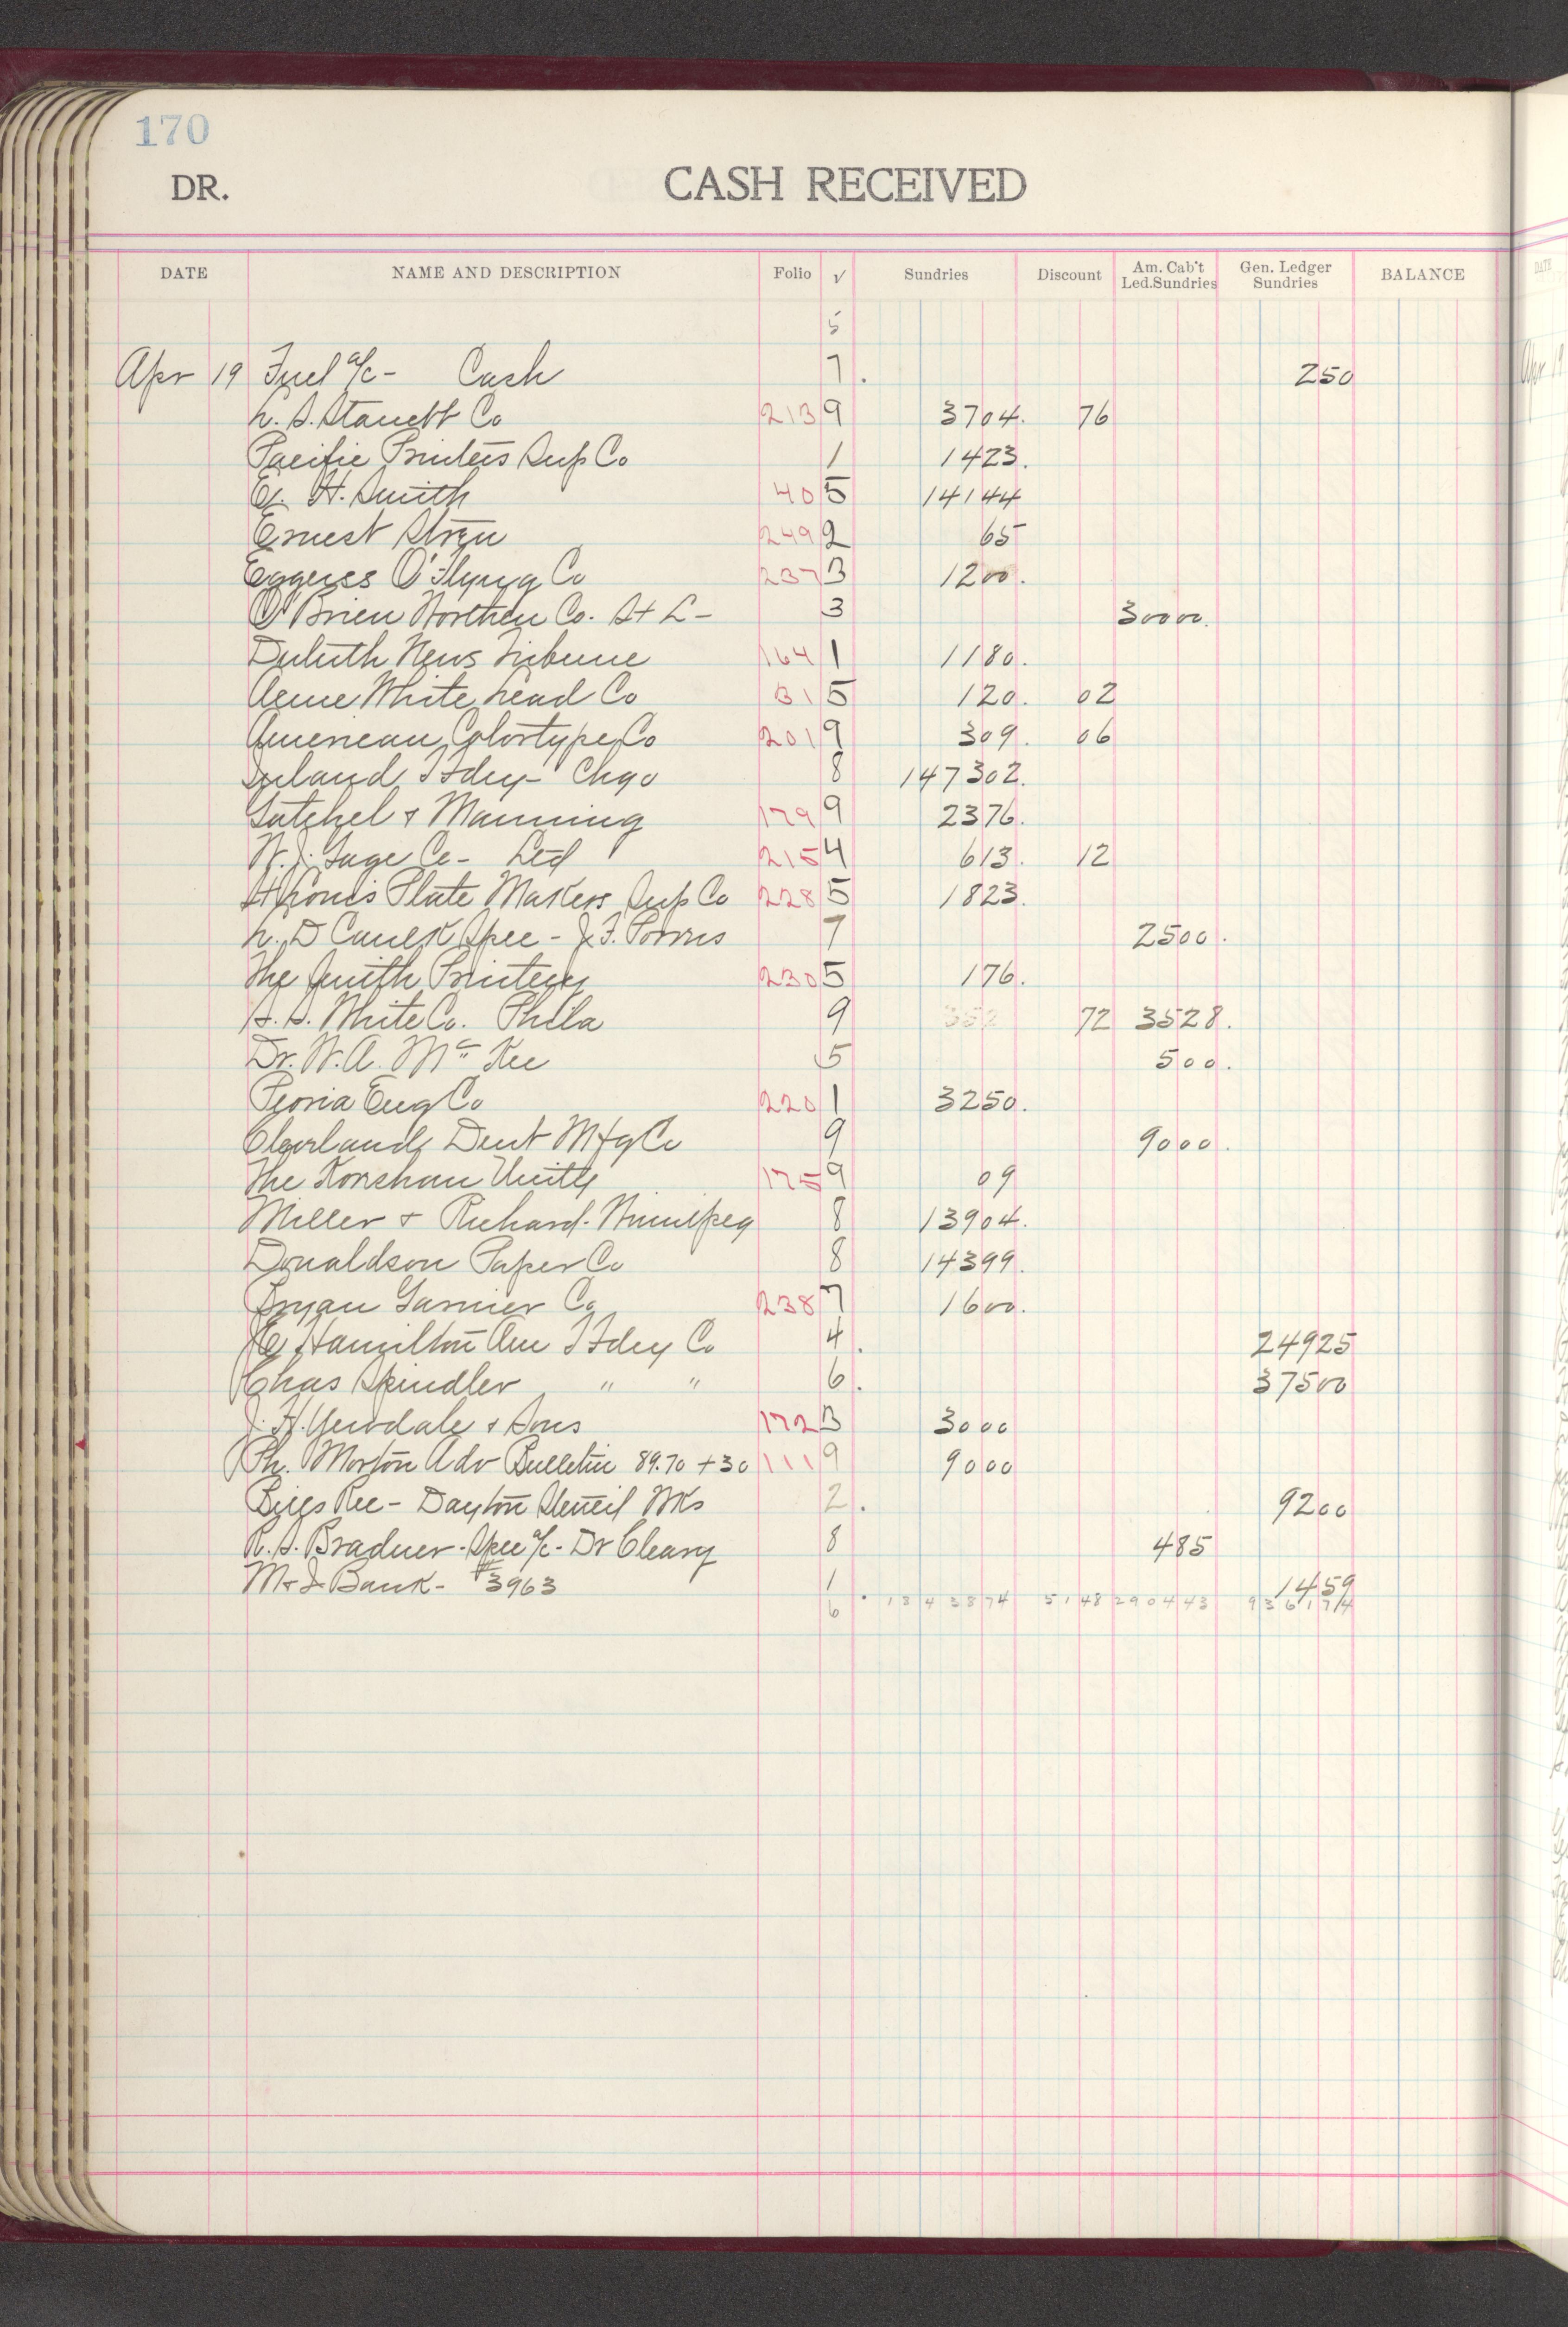 170
DR. CASH RECEIVED
DATE NAME AND DESCRIPTION Folio √ Sundries Discount Am. Cab't Led.Sundries Gen. Ledger Sundries BALANCE
5
Apr 19 Fuel a/c - Cash 7 . 250
L. S. Starrett Co 213 9 3704. 76
Pacific Printers Sup Co 1 1423.
H. Smith 40 5 14144
Ernest 249 2 65
Eggerss O'Flyng Co 237 3 1200.
O'Brien Worthen Co. St L - 3 30000.
Duluth News Tribune 164 1 1180.
Acme White Lead Co 31 5 120. 02
American Colortype Co 201 9 309. 06
Inland T Fdry - Chgo 8 147302.
Gatchel & Manning 179 9 2376.
W. J. Gage Co - Ltd 215 4 613. 12
St Louis Plate Makers Sup Co 228 5 1823.
L. D Caulk Spec - J. F. 7 2500.
The Smith Printery 230 5 176.
S. S. White Co. Phila 9 352 72 3528.
Dr. W. A. Mc Kee 5 500.
Peoria Eng Co 220 1 3250.
Cleveland Dent Mfg Co 9 9000.
The Korshan Unity 175 9 09
Miller & Richard - Winnipeg 8 13904.
Donaldson Paper Co 8 14399.
Tryan Garnier Co 238 7 1600.
Hamilton Am T Fdry Co 4 . 24925
Chas Spindler " " 6 . 37500
J. H. Yewdale & Sons 172 3 3000
Ph. Morton Adv Bulletin 89.70 + 30 111 9 9000
Bills Rec - Dayton Stencil Wks 2 . 9200
R. S. Braduer - Spec a/c - Dr Cleary 8 485
M & I Bank - #3963 1 . 1459
6 13 4 38 74 51 48 2904 43 93 61 74